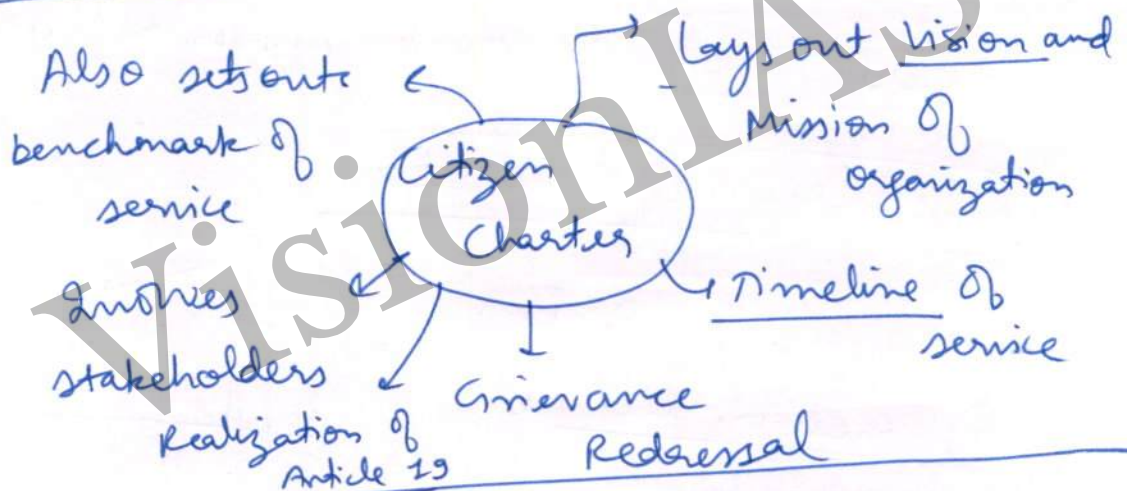 Citizen
Charter
Lays out Vision and
Mission of
organization
Timeline of
service
Grievance
Redressal
Realization of
Article 19
Involves
stakeholders
Also sets out
benchmark of
service
VisionIAS